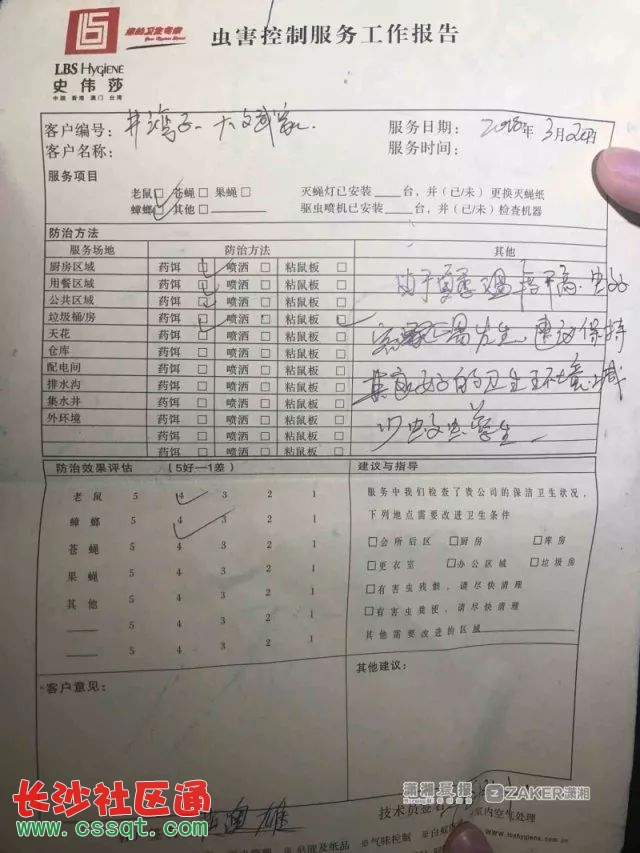 LBS HYGIENE
史伟莎
中国 香港 澳门 台湾
虫害控制服务工作报告
客户编号：井湾子
服务日期：2018年3月2
客户名称：
服务时间：
服务项目
老鼠□ 苍蝇□ 果蝇□ 灭蝇灯已安装____台，并（已/未）更换灭蝇纸
蟑螂□ 其他□________ 驱虫喷机已安装____台，并（已/未）检查机器
防治方法
服务场地 防治方法 其他
厨房区域 药饵□ 喷洒□ 粘鼠板□
用餐区域 药饵□ 喷洒□ 粘鼠板□
公共区域 药饵□ 喷洒□ 粘鼠板□
垃圾桶/房 药饵□ 喷洒□ 粘鼠板□
天花 药饵□ 喷洒□ 粘鼠板□
仓库 药饵□ 喷洒□ 粘鼠板□
配电间 药饵□ 喷洒□ 粘鼠板□
排水沟 药饵□ 喷洒□ 粘鼠板□
集水井 药饵□ 喷洒□ 粘鼠板□
外环境 药饵□ 喷洒□ 粘鼠板□
药饵□ 喷洒□ 粘鼠板□
药饵□ 喷洒□ 粘鼠板□
由于
建议保持
良好的卫生环境 减
少
防治效果评估 （5好—1差）
老鼠 5 4 3 2 1
蟑螂 5 4 3 2 1
苍蝇 5 4 3 2 1
果蝇 5 4 3 2 1
其他 5 4 3 2 1
____ 5 4 3 2 1
____ 5 4 3 2 1
建议与指导
服务中我们检查了贵公司的保洁卫生状况，
下列地点需要改进卫生条件
□会所后区 □厨房 □库房
□更衣室 □办公区域 □垃圾房
□有害虫残骸，请尽快清理
□有害虫粪便，请尽快清理
其他需要改进的区域________
客户意见：
其他建议：
潇湘晨报 ZAKER潇湘
长沙社区通
www.cssqt.com
技术员签名
室内空气处理
气味控制
www.lbshygiene.com.cn